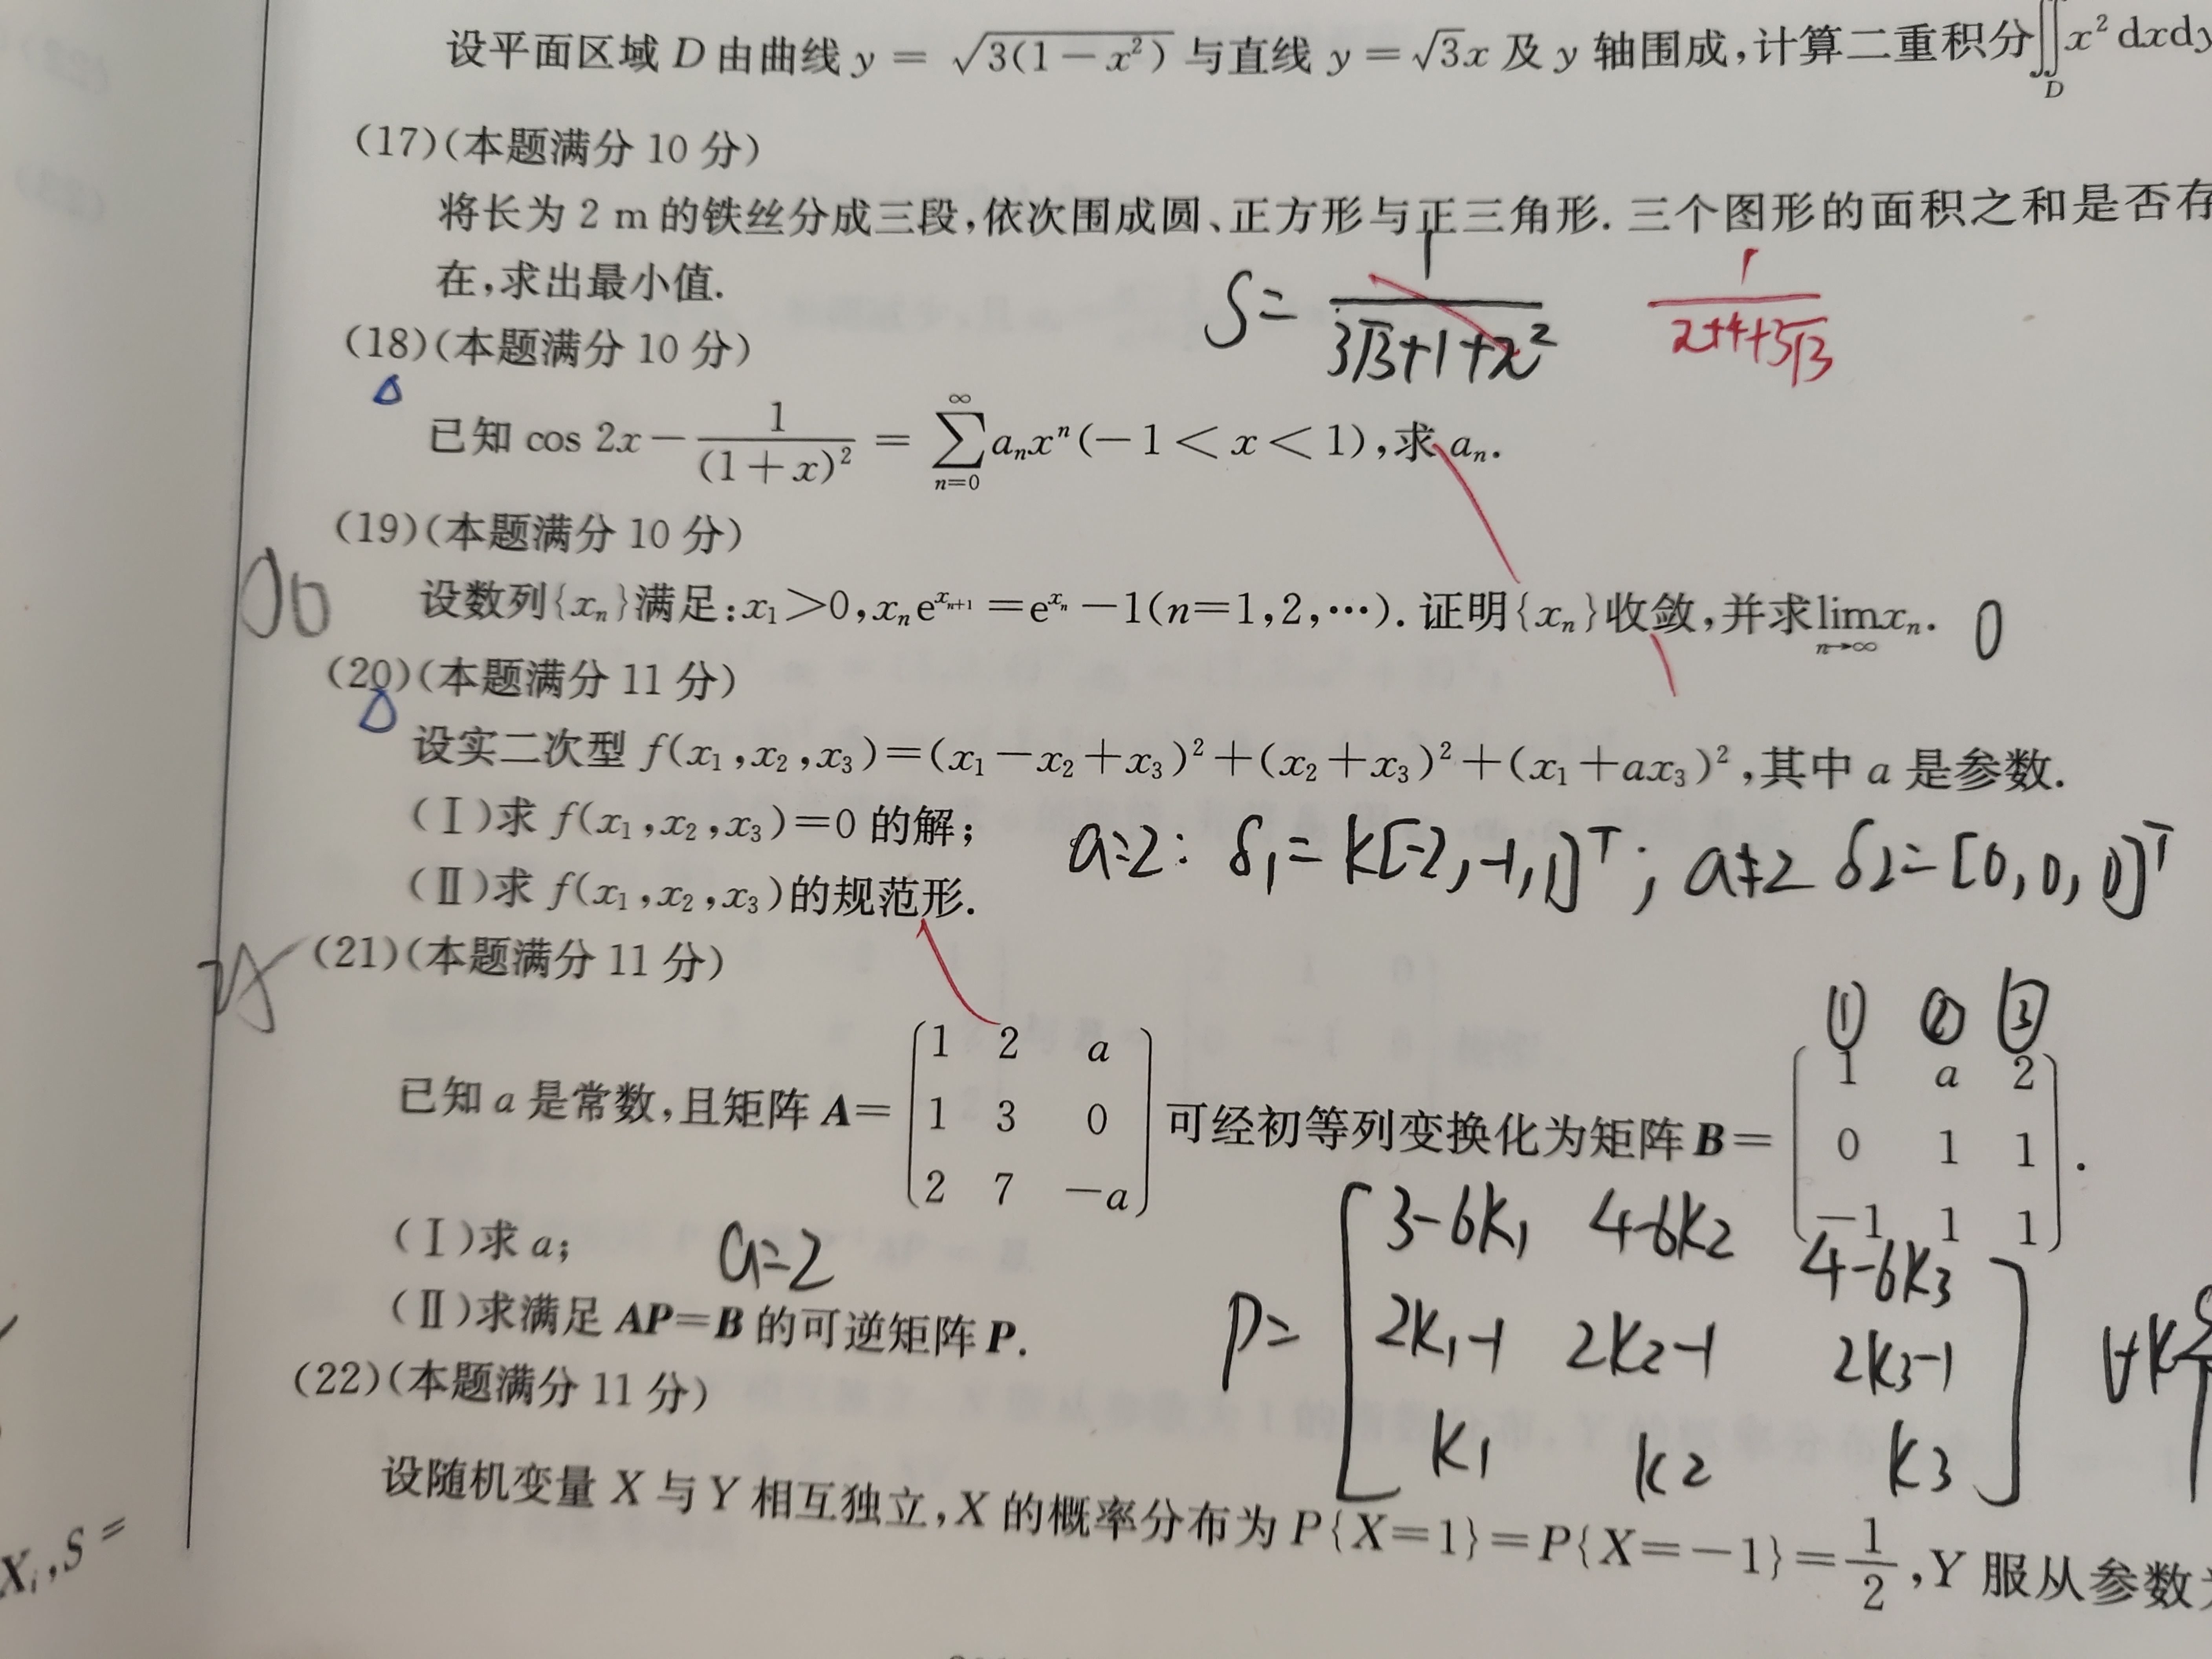 设平面区域 D 由曲线 y = √3(1−x²) 与直线 y = √3x 及 y 轴围成,计算二重积分∬_D x² dxdy
(17)(本题满分 10 分)
将长为 2 m 的铁丝分成三段,依次围成圆、正方形与正三角形. 三个图形的面积之和是否存
在,求出最小值.
S = 1/(3√3+1+π²) 1/(π+4+3√3)
(18)(本题满分 10 分)
已知 cos 2x − 1/(1+x)² = ∑_{n=0}^{∞} aₙxⁿ(−1 < x < 1),求 aₙ.
(19)(本题满分 10 分)
设数列{xₙ}满足:x₁>0,xₙe^{xₙ₊₁}=e^{xₙ}−1(n=1,2,⋯). 证明{xₙ}收敛,并求lim_{n→∞}xₙ. 0
(20)(本题满分 11 分)
设实二次型 f(x₁,x₂,x₃)=(x₁−x₂+x₃)²+(x₂+x₃)²+(x₁+ax₃)²,其中 a 是参数.
(Ⅰ)求 f(x₁,x₂,x₃)=0 的解;
a=2: δ₁=k[-2,-1,1]ᵀ; a≠2 δ2=[0,0,0]ᵀ
(Ⅱ)求 f(x₁,x₂,x₃)的规范形.
(21)(本题满分 11 分)
① ② ③
已知 a 是常数,且矩阵 A=[1 2 a; 1 3 0; 2 7 −a]可经初等列变换化为矩阵 B=[1 a 2; 0 1 1; −1 1 1].
(Ⅰ)求 a; a=2
(Ⅱ)求满足 AP=B 的可逆矩阵 P.
P=[3-6k₁ 4-6k2 4-6k3; 2k₁-1 2k2-1 2k3-1; k₁ k2 k3]
(22)(本题满分 11 分)
设随机变量 X 与 Y 相互独立,X 的概率分布为 P{X=1}=P{X=−1}=1/2,Y 服从参数为
Xᵢ,S =